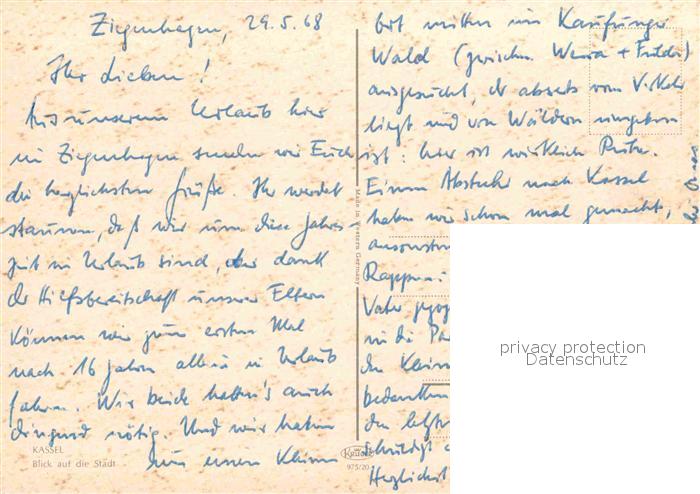 Ziegenhagen, 29.5.68
Ihr Lieben!
Aus unserem Urlaub hier
in Ziegenhagen senden wir Euch
die herzlichsten Grüße. Ihr werdet
staunen, daß wir um diese Jahres-
zeit in Urlaub sind, aber dank
der Hilfsbereitschaft unserer Eltern
können wir zum ersten Mal
nach 16 Jahren allein in Urlaub
fahren. Wir beide hatten's auch
dringend nötig. Und wir haben
uns einen kleinen
KASSEL
Blick auf die Stadt
Made in Western Germany
Krüger
975/20
Ort mitten im Kaufunger
Wald (zwischen Werra + Fulda)
ausgesucht, der abseits vom Verkehr
liegt und von Wäldern umgeben
ist: hier ist wirklich Ruhe.
Einen Abstecher nach Kassel
haben wir schon mal gemacht,
ansonsten
Vater
in die
den
bedanken
den letzten
Herzlichst
privacy protection
Datenschutz